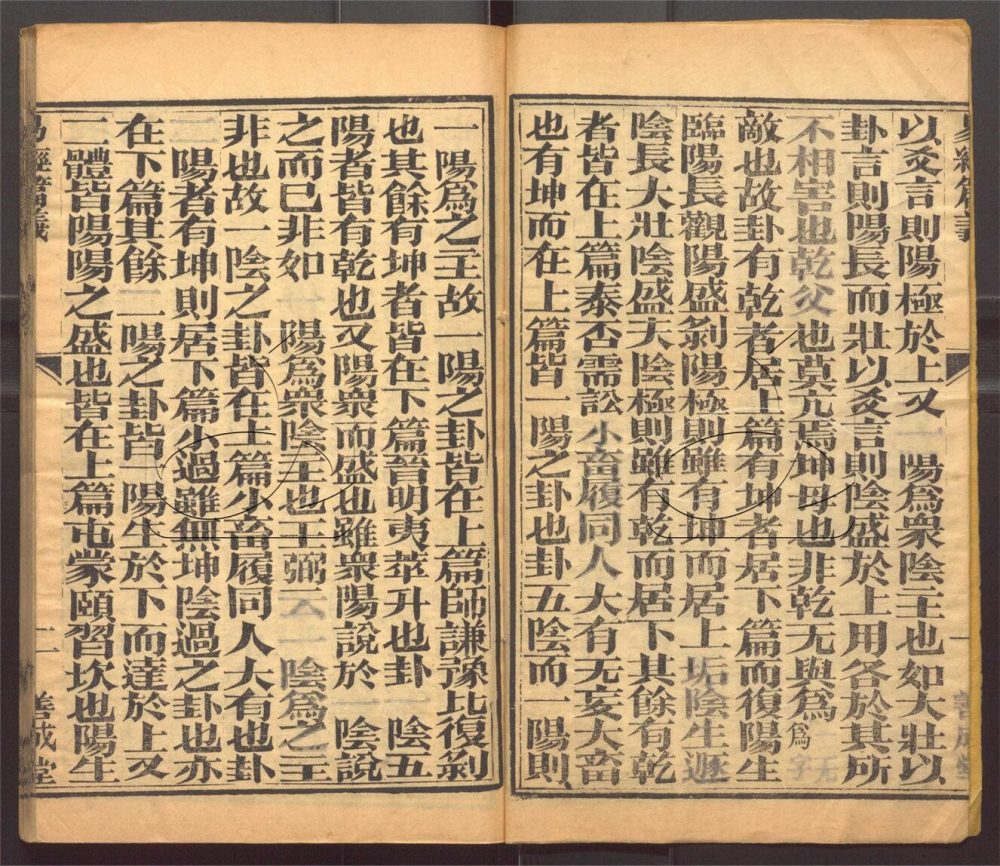 以爻言則陽極於上又一陽爲衆陰主也如大壯以
卦言則陽長而壯以爻言則陰盛於上用各於其所
不相害也乾父也莫亢焉坤母也非乾无與爲爲无字
敵也故卦有乾者居上篇有坤者居下篇而復陽生
臨陽長觀陽盛剝陽極則雖有坤而居上垢陰生遯
陰長大壯陰盛夬陰極則雖有乾而居下其餘有乾
者皆在上篇泰否需訟小畜履同人大有无妄大畜
也有坤而在上篇皆一陽之卦也卦五陰而一陽則
一陽爲之主故一陽之卦皆在上篇師謙豫比復剝
也其餘有坤者皆在下篇晉明夷萃升也卦一陰五
陽者皆有乾也又陽衆而盛也雖衆陽說於一陰說
之而已非如一陽爲衆陰主也王弼云一陰爲之主
非也故一陰之卦皆在上篇小畜履同人大有也卦
二陽者有坤則居下篇小過雖無坤陰過之卦也亦
在下篇其餘二陽之卦皆一陽生於下而達於上又
二體皆陽陽之盛也皆在上篇屯蒙頤習坎也陽生
易經篇義
二
善成堂